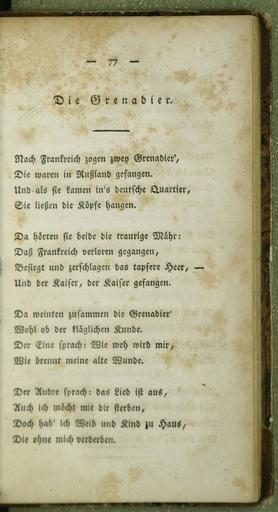 — 77 —
Die Grenadier.
Nach Frankreich zogen zwey Grenadier',
Die waren in Rußland gefangen.
Und als sie kamen in's deutsche Quartier,
Sie ließen die Köpfe hangen.
Da hörten sie beide die traurige Mähr:
Daß Frankreich verloren gegangen,
Besiegt und zerschlagen das tapfere Heer, —
Und der Kaiser, der Kaiser gefangen.
Da weinten zusammen die Grenadier'
Wohl ob der kläglichen Kunde.
Der Eine sprach: Wie weh wird mir,
Wie brennt meine alte Wunde.
Der Andre sprach: das Lied ist aus,
Auch ich möcht mit dir sterben,
Doch hab' ich Weib und Kind zu Haus,
Die ohne mich verderben.